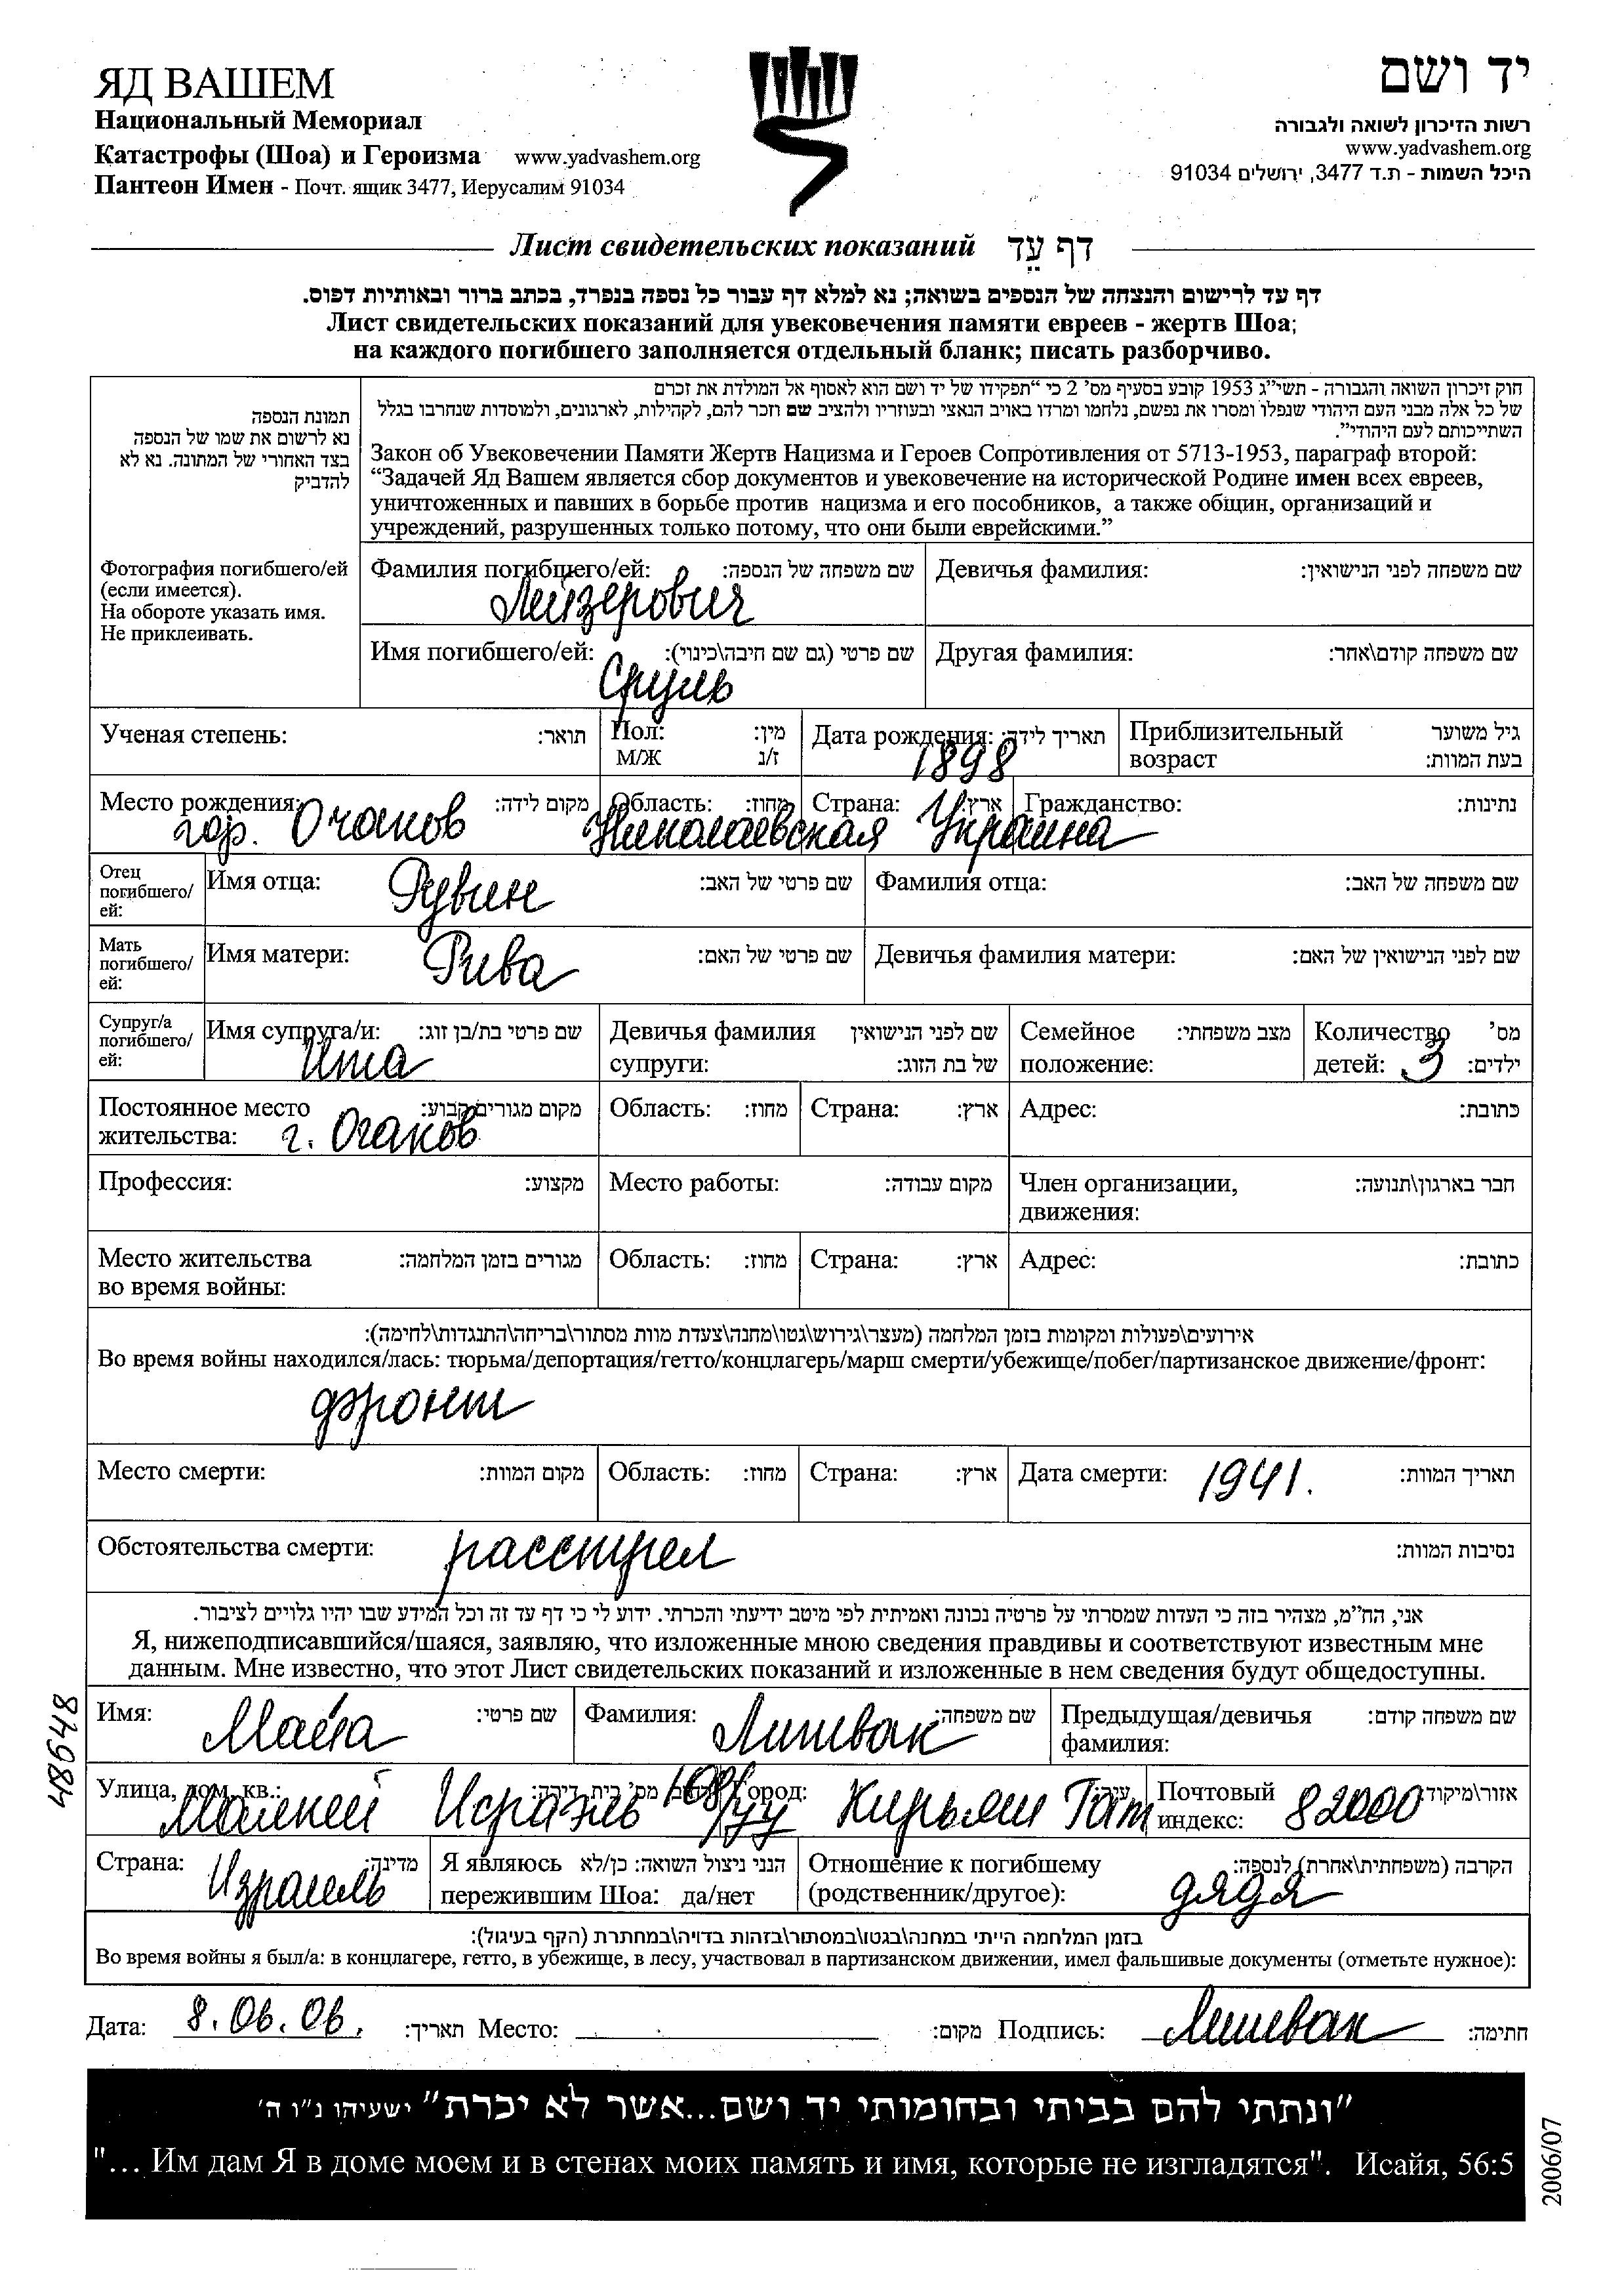 ЯД ВАШЕМ
יד ושם
Национальный Мемориал
Катастрофы (Шоа) и Героизма www.yadvashem.org
Пантеон Имен - Почт. ящик 3477, Иерусалим 91034
רשות הזיכרון לשואה ולגבורה
www.yadvashem.org
היכל השמות - ת.ד 3477, ירושלים 91034
Лист свидетельских показаний דף עֵד
דף עד לרישום והנצחה של הנספים בשואה; נא למלא דף עבור כל נספה בנפרד, בכתב ברור ובאותיות דפוס.
Лист свидетельских показаний для увековечения памяти евреев - жертв Шоа;
на каждого погибшего заполняется отдельный бланк; писать разборчиво.
תמונת הנספה
נא לרשום את שמו של הנספה
בצד האחורי של המתונה. נא לא
להדביק
Фотография погибшего/ей
(если имеется).
На обороте указать имя.
Не приклеивать.
חוק זיכרון השואה והגבורה - תשי"ג 1953 קובע בסעיף מס' 2 כי "תפקידו של יד ושם הוא לאסוף אל המולדת את זכרם
של כל אלה מבני העם היהודי שנפלו ומסרו את נפשם, נלחמו ומרדו באויב הנאצי ובעוזריו ולהציב שם וזכר להם, לקהילות, לארגונים, ולמוסדות שנחרבו בגלל
השתייכותם לעם היהודי".
Закон об Увековечении Памяти Жертв Нацизма и Героев Сопротивления от 5713-1953, параграф второй:
“Задачей Яд Вашем является сбор документов и увековечение на исторической Родине имен всех евреев,
уничтоженных и павших в борьбе против нацизма и его пособников, а также общин, организаций и
учреждений, разрушенных только потому, что они были еврейскими.”
Фамилия погибшего/ей: שם משפחה של הנספה:
Лейзерович
Девичья фамилия: שם משפחה לפני הנישואין:
Имя погибшего/ей: שם פרטי (גם שם חיבה\כינוי):
Сруль
Другая фамилия: שם משפחה קודם\אחר:
Ученая степень: תואר:
Пол: מין:
М/Ж ז/נ
Дата рождения: תאריך לידה:
1898
Приблизительный גיל משוער
возраст בעת המוות:
Место рождения: מקום לידה:
гор. Очаков
Область: מחוז:
Николаевская
Страна: ארץ:
Украина
Гражданство: נתינות:
Отец
погибшего/
ей:
Имя отца: Рувин שם פרטי של האב:
Фамилия отца: שם משפחה של האב:
Мать
погибшего/
ей:
Имя матери: Рива שם פרטי של האם:
Девичья фамилия матери: שם לפני הנישואין של האם:
Супруг/а
погибшего/
ей:
Имя супруга/и: שם פרטי בת/בן זוג:
Ита
Девичья фамилия שם לפני הנישואין
супруги: של בת הזוג:
Семейное מצב משפחתי:
положение:
Количество מס'
детей: 3 ילדים:
Постоянное место מקום מגורים קבוע:
жительства: г. Очаков
Область: מחוז:
Страна: ארץ:
Адрес: כתובת:
Профессия: מקצוע:
Место работы: מקום עבודה:
Член организации, חבר בארגון\תנועה:
движения:
Место жительства מגורים בזמן המלחמה:
во время войны:
Область: מחוז:
Страна: ארץ:
Адрес: כתובת:
אירועים\פעולות ומקומות בזמן המלחמה (מעצר\גירוש\גטו\מחנה\צעדת מוות מסתור\בריחה\התנגדות\לחימה):
Во время войны находился/лась: тюрьма/депортация/гетто/концлагерь/марш смерти/убежище/побег/партизанское движение/фронт:
фронт
Место смерти: מקום המוות:
Область: מחוז:
Страна: ארץ:
Дата смерти: 1941. תאריך המוות:
Обстоятельства смерти: расстрел נסיבות המוות:
אני, הח"מ, מצהיר בזה כי העדות שמסרתי על פרטיה נכונה ואמיתית לפי מיטב ידיעתי והכרתי. ידוע לי כי דף עד זה וכל המידע שבו יהיו גלויים לציבור.
Я, нижеподписавшийся/шаяся, заявляю, что изложенные мною сведения правдивы и соответствуют известным мне
данным. Мне известно, что этот Лист свидетельских показаний и изложенные в нем сведения будут общедоступны.
Имя: Майа שם פרטי:
Фамилия: Литвак שם משפחה:
Предыдущая/девичья שם משפחה קודם:
фамилия:
Улица, дом, кв.:
Малкей Исраэль
Город: עיר:
Кирьят Гат
Почтовый אזור\מיקוד:
индекс: 82000
Страна: מדינה:
Израиль
Я являюсь הנני ניצול השואה: כן/לא
пережившим Шоа: да/нет
Отношение к погибшему הקרבה (משפחתית\אחרת) לנספה:
(родственник/другое): дядя
בזמן המלחמה הייתי במחנה\בגטו\במסתור\בזהות בדויה\במחתרת (הקף בעיגול):
Во время войны я был/а: в концлагере, гетто, в убежище, в лесу, участвовал в партизанском движении, имел фальшивые документы (отметьте нужное):
Дата: 8.06.06. תאריך: Место: מקום: Подпись: Литвак חתימה:
"ונתתי להם בביתי ובחומותי יד ושם...אשר לא יכרת" ישעיהו נ"ו ה'
"… Им дам Я в доме моем и в стенах моих память и имя, которые не изгладятся". Исайя, 56:5
48648
2006/07